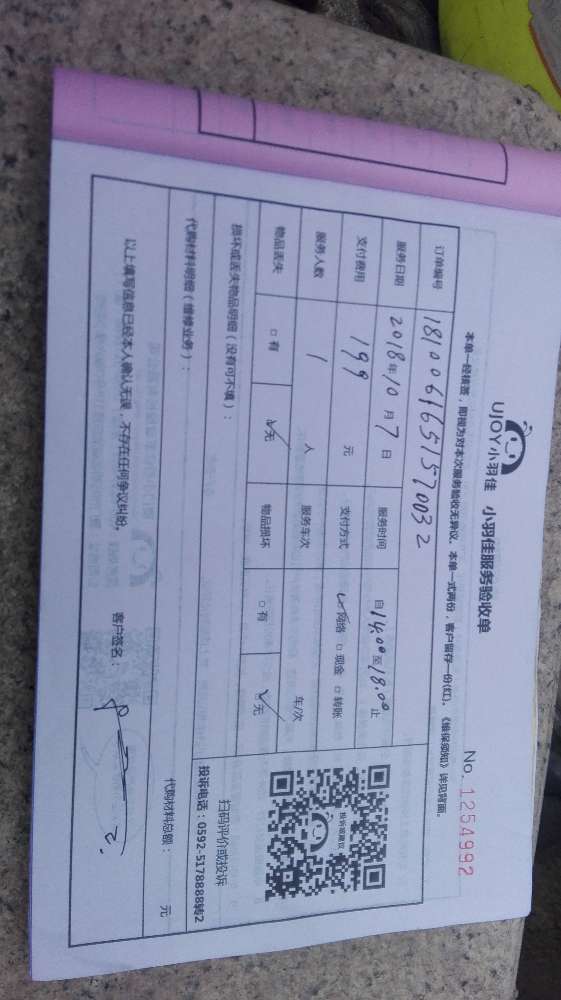 UJOY小羽佳 小羽佳服务验收单
No. 1254992
本单一经核签，即视为对本次服务验收无异议。本单一式两份，客户留存一份(红)。《维保须知》详见背面。
订单编号 181006165157 0032
服务日期 2018年10月7日 服务时间 自14:00至18:00止
支付费用 199 元 支付方式 ☑网络 □现金 □转账
服务人数 1 人 服务车次 车/次
物品丢失 □有 ☑无 物品损坏 □有 ☑无
投诉或建议
扫码评价或投诉
投诉电话：0592-5178888转2
损坏或丢失物品明细（没有可不填）：
代购材料明细（维修业务）：
代购材料总额： 元
以上填写信息已经本人确认无误，不存在任何争议纠纷。 客户签名：